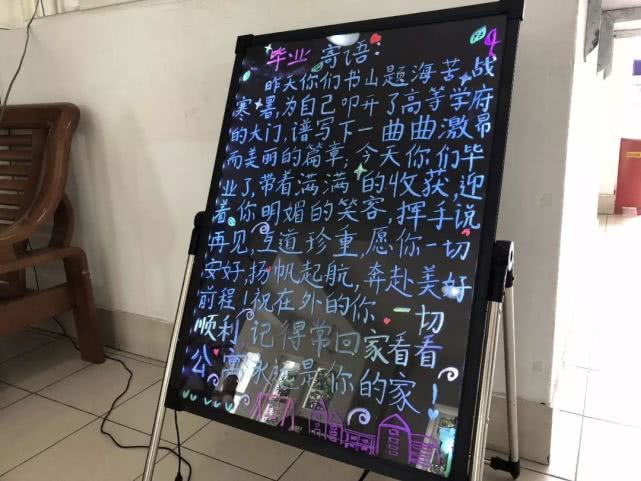 毕业寄语:
昨天你们书山题海苦战
寒暑,为自己叩开了高等学府
的大门,谱写下一曲曲激昂
而美丽的篇章;今天你们毕
业了,带着满满的收获,迎
着你明媚的笑容,挥手说
再见,互道珍重,愿你一切
安好,扬帆起航,奔赴美好
前程!祝在外的你一切
顺利,记得常回家看看
公寓永远是你的家!